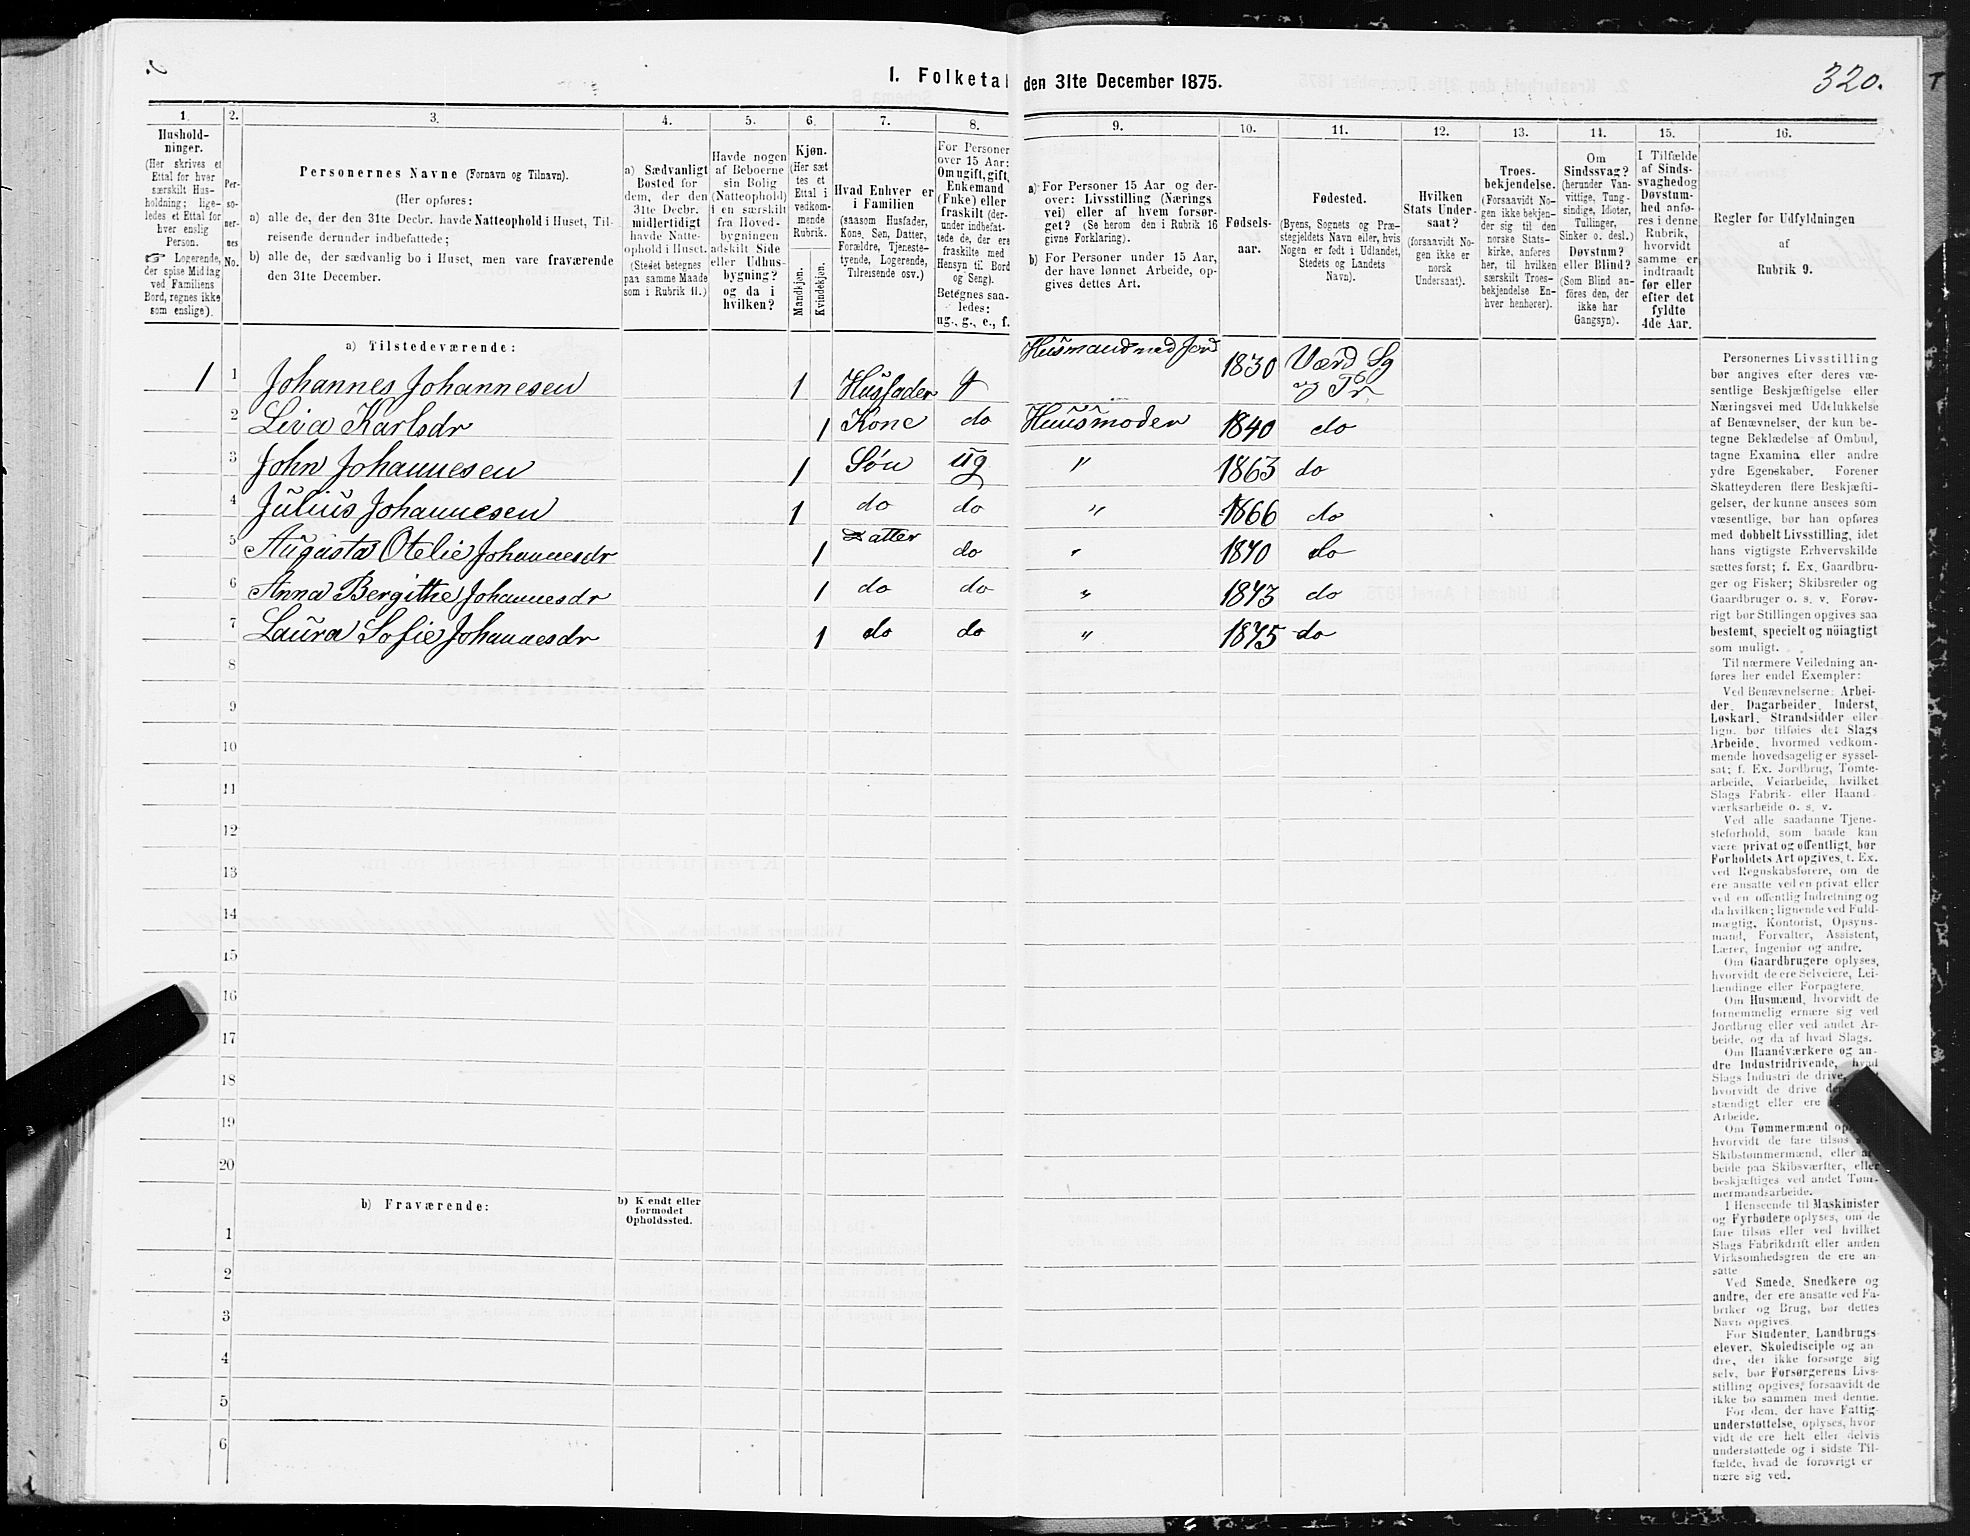 1. Folketal den 31te December 1875.
320.
1.
2.
3.
4.
5.
6.
7.
8.
9.
10.
11.
12.
13.
14.
15.
16.
Hushold-
ninger.
(Her skrives et
Ettal for hver
særskilt Hus-
holdning; lige-
ledes et Ettal for
hver enslig
Person.
☞ Logerende,
der spise Middag
ved Familiens
Bord, regnes ikke
som enslige).
Per-
so-
ner-
nes
No.
Personernes Navne (Fornavn og Tilnavn).
(Her opføres:
a) alle de, der den 31te Decbr. havde Natteophold i Huset, Til-
reisende derunder indbefattede;
b) alle de, der sædvanlig bo i Huset, men vare fraværende
den 31te December.
a) Sædvanligt
Bosted for
dem, der den
31te Decbr.
midlertidigt
havde Natte-
ophold i Huset.
(Stedet betegnes
paa samme Maade
som i Rubrik 11.)
Havde nogen
af Beboerne
sin Bolig
(Natteophold)
i en særskilt
fra Hoved-
bygningen
adskilt Side
eller Udhus-
bygning?
og da i
hvilken?
Kjøn.
(Her sæt
tes et
Ettal i
vedkom-
mende
Rubrik.
Mandkjøn.
Kvindekjøn.
Hvad Enhver er
i Familien
(saasom Husfader,
Kone, Søn, Datter,
Forældre, Tjeneste-
tyende, Logerende,
Tilreisende osv.)
For Personer
over 15 Aar:
Om ugift, gift,
Enkemand
(Enke) eller
fraskilt (der-
under indbefat-
tede de, der ere
fraskilte med
Hensyn til Bord
og Seng).
Betegnes saa-
ledes:
ug., g., e., f.
a) For Personer 15 Aar og der-
over: Livsstilling (Nærings
vei) eller af hvem forsør-
get? (Se herom den i Rubrik 16
givne Forklaring).
b) For Personer under 15 Aar,
der have lønnet Arbeide, op-
gives dettes Art.
Fødsels-
aar.
Fødested.
(Byens, Sognets og Præ-
stegjeldets Navn eller, hvis
Nogen er født i Udlandet,
Stedets og Landets
Navn).
Hvilken
Stats Under-
saat?
(forsaavidt No-
gen ikke er
norsk
Undersaat).
Troes-
bekjendelse.
(Forsaavidt No-
gen ikke bekjen-
der sig til den
norske Stats-
kirke, anføres
her, til hvilken
særskilt Troes-
bekjendelse En-
hver henhører).
Om
Sindssvag?
(herunder Van-
vittige, Tung-
sindige, Idioter,
Tullinger,
Sinker o. desl.)
Døvstum?
eller Blind?
(Som Blind an-
føres den, der
ikke har
Gangsyn).
I Tilfælde
af Sinds-
svaghed og
Døvstum-
hed anfø-
res i denne
Rubrik,
hvorvidt
samme er
indtraadt
før eller
efter det
fyldte
4de Aar.
Regler for Udfyldningen
af
Rubrik 9.
a) Tilstedeværende:
1 1 Johannes Johannesen 1 Husfader g Husmand med Jord 1830 Værd Sg
og Pr
2 Liva Karlsdr 1 Kone do Huusmoder 1840 do
3 John Johannesen 1 Søn ug " 1863 do
4 Julius Johannesen 1 do do " 1866 do
5 Augusta Otelie Johannesdr 1 Datter do " 1870 do
6 Anna Bergithe Johannesdr 1 do do " 1873 do
7 Laura Sofie Johannesdr 1 do do " 1875 do
8
9
10
11
12
13
14
15
16
17
18
19
20
b) Fraværende:
b) Kjendt eller
formodet
Opholdssted.
1
2
3
4
5
6
Personernes Livsstilling
bør angives efter deres væ-
sentlige Beskjæftigelse eller
Næringsvei med Udelukkelse
af Benævnelser, der kun be-
tegne Beklædelse af Ombud,
tagne Examina eller andre
ydre Egenskaber. Forener
Skatteyderen flere Beskjæfti-
gelser, der kunne ansees som
væsentlige, bør han opføres
med dobbelt Livsstilling, idet
hans vigtigste Erhvervskilde
sættes først; f. Ex. Gaardbru-
ger og Fisker; Skibsreder og
Gaardbruger o. s. v. Forøv-
rigt bør Stillingen opgives saa
bestemt, specielt og nöiagtigt
som muligt.
Til nærmere Veiledning an-
føres her endel Exempler:
Ved Benævnelserne: Arbei-
der, Dagarbeider, Inderst,
Løskarl, Strandsidder eller
lign. bør tilføies det Slags
Arbeide, hvormed vedkom-
mende hovedsagelig er syssel-
sat; f. Ex. Jordbrug, Tomte-
arbeide, Veiarbeide, hvilket
Slags Fabrik- eller Haand-
værksarbeide o. s. v.
Ved alle saadanne Tjene-
steforhold, som baade kan
være privat og offentligt, bør
Forholdets Art opgives, f. Ex.
ved Regnskabsførere, om de
ere ansatte ved en privat eller
ved en offentlig Indretning og
da hvilken; lignende ved Fuld-
mægtig, Kontorist, Opsyns-
mand, Forvalter, Assistent,
Lærer, Ingeniør og andre.
Om Gaardbrugere oplyses,
hvorvidt de ere Selveiere, Lei-
lændinge eller Forpagtere.
Om Husmænd, hvorvidt de
fornemmelig ernære sig ved
Jordbrug eller ved andet Ar-
beide, og da af hvad Slags.
Om Haandværkere og an-
dre Industridrivende, hvad
Slags Industri de drive,
hvorvidt de drive
stændigt eller ere
Arbeide.
Om Tømmermænd
hvorvidt de fare tilsøs
Skibstømmermænd, eller ar-
beide paa Skibsværfter, eller
beskjæftiges ved andet Tøm-
mermandsarbeide.
I Henseende til Maskinister
og Fyrbødere oplyses, om de
fare tilsøs eller ved hvilket
Slags Fabrikdrift eller anden
Virksomhedsgren de ere an-
satte
Ved Smede, Snedkere og
andre, der ere ansatte ved Fa-
briker og Brug, bør dettes
Navn opgives.
For Studenter, Landbrugs-
elever, Skoledisciple og an-
dre, der ikke forsørge sig
selv, bør Forsørgerens Livs-
stilling opgives, forsaavidt de
ikke bo sammen med denne.
For dem, der have Fattig-
understøttelse, oplyses, hvor-
vidt de ere helt eller delvis
understøttede og i sidste Til-
fælde, hvad de forøvrigt er
nære sig ved.